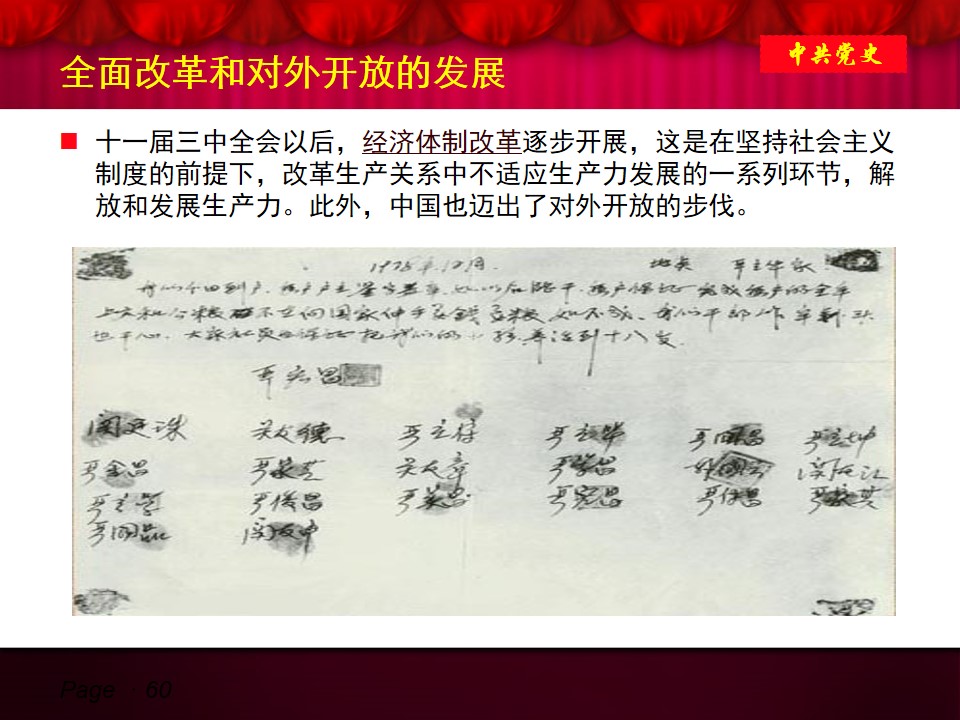 全面改革和对外开放的发展
中共党史
十一届三中全会以后，经济体制改革逐步开展，这是在坚持社会主义
制度的前提下，改革生产关系中不适应生产力发展的一系列环节，解
放和发展生产力。此外，中国也迈出了对外开放的步伐。
1978年12月. 地点 严立华家
我们分田到户，每户户主签字盖章，如以后能干，每户保证完成每户的全年
上交和公粮，不在向国家伸手要钱要粮，如不成，我们干部作牢剎头
也干心，大家社员也保证把我们的小孩养活到十八岁.
严宏昌
关友德 严立符 严立华 严国昌 严立坤
严金昌 严家芝 关友章 严学昌 韩国云 关友江
严立学 严俊昌 严美昌 严宏昌 严付昌 严家其
严国品 关友申
Page 60